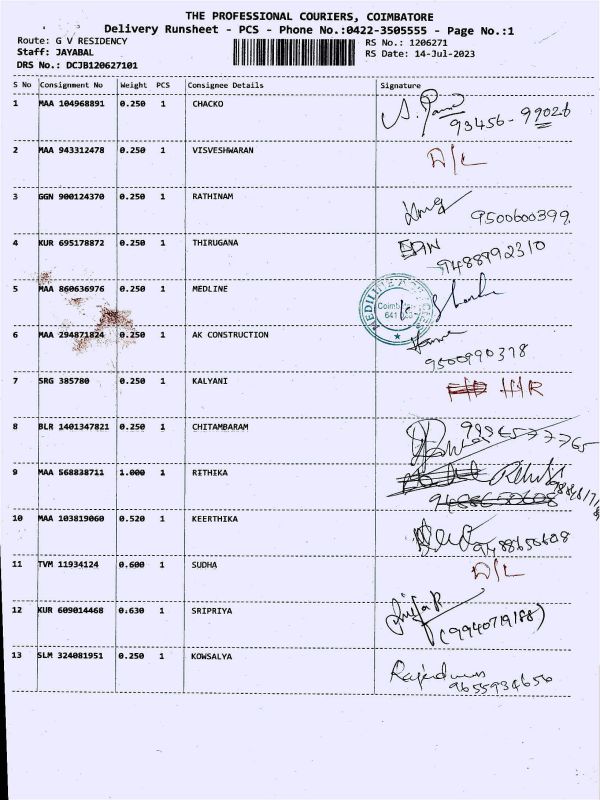 THE PROFESSIONAL COURIERS, COIMBATORE
Delivery Runsheet - PCS - Phone No.:0422-3505555 - Page No.:1
Route: G V RESIDENCY RS No.: 1206271
Staff: JAYABAL RS Date: 14-Jul-2023
DRS No.: DCJB120627101
S No Consignment No Weight PCS Consignee Details Signature
1 MAA 104968891 0.250 1 CHACKO
93456-99026
2 MAA 943312478 0.250 1 VISVESHWARAN D/L
3 GGN 900124370 0.250 1 RATHINAM
9500600399
4 KUR 695178872 0.250 1 THIRUGANA
9488992310
5 MAA 860636976 0.250 1 MEDLINE
Coimb
641
6 MAA 294871824 0.250 1 AK CONSTRUCTION
9500990378
7 SRG 385780 0.250 1 KALYANI
8 BLR 1401347821 0.250 1 CHITAMBARAM
9 MAA 568838711 1.000 1 RITHIKA
9488650608
10 MAA 103819060 0.520 1 KEERTHIKA
9488650608
11 TVM 11934124 0.600 1 SUDHA D/L
12 KUR 609014468 0.630 1 SRIPRIYA
(9940719188)
13 SLM 324081951 0.250 1 KOWSALYA
9655934656